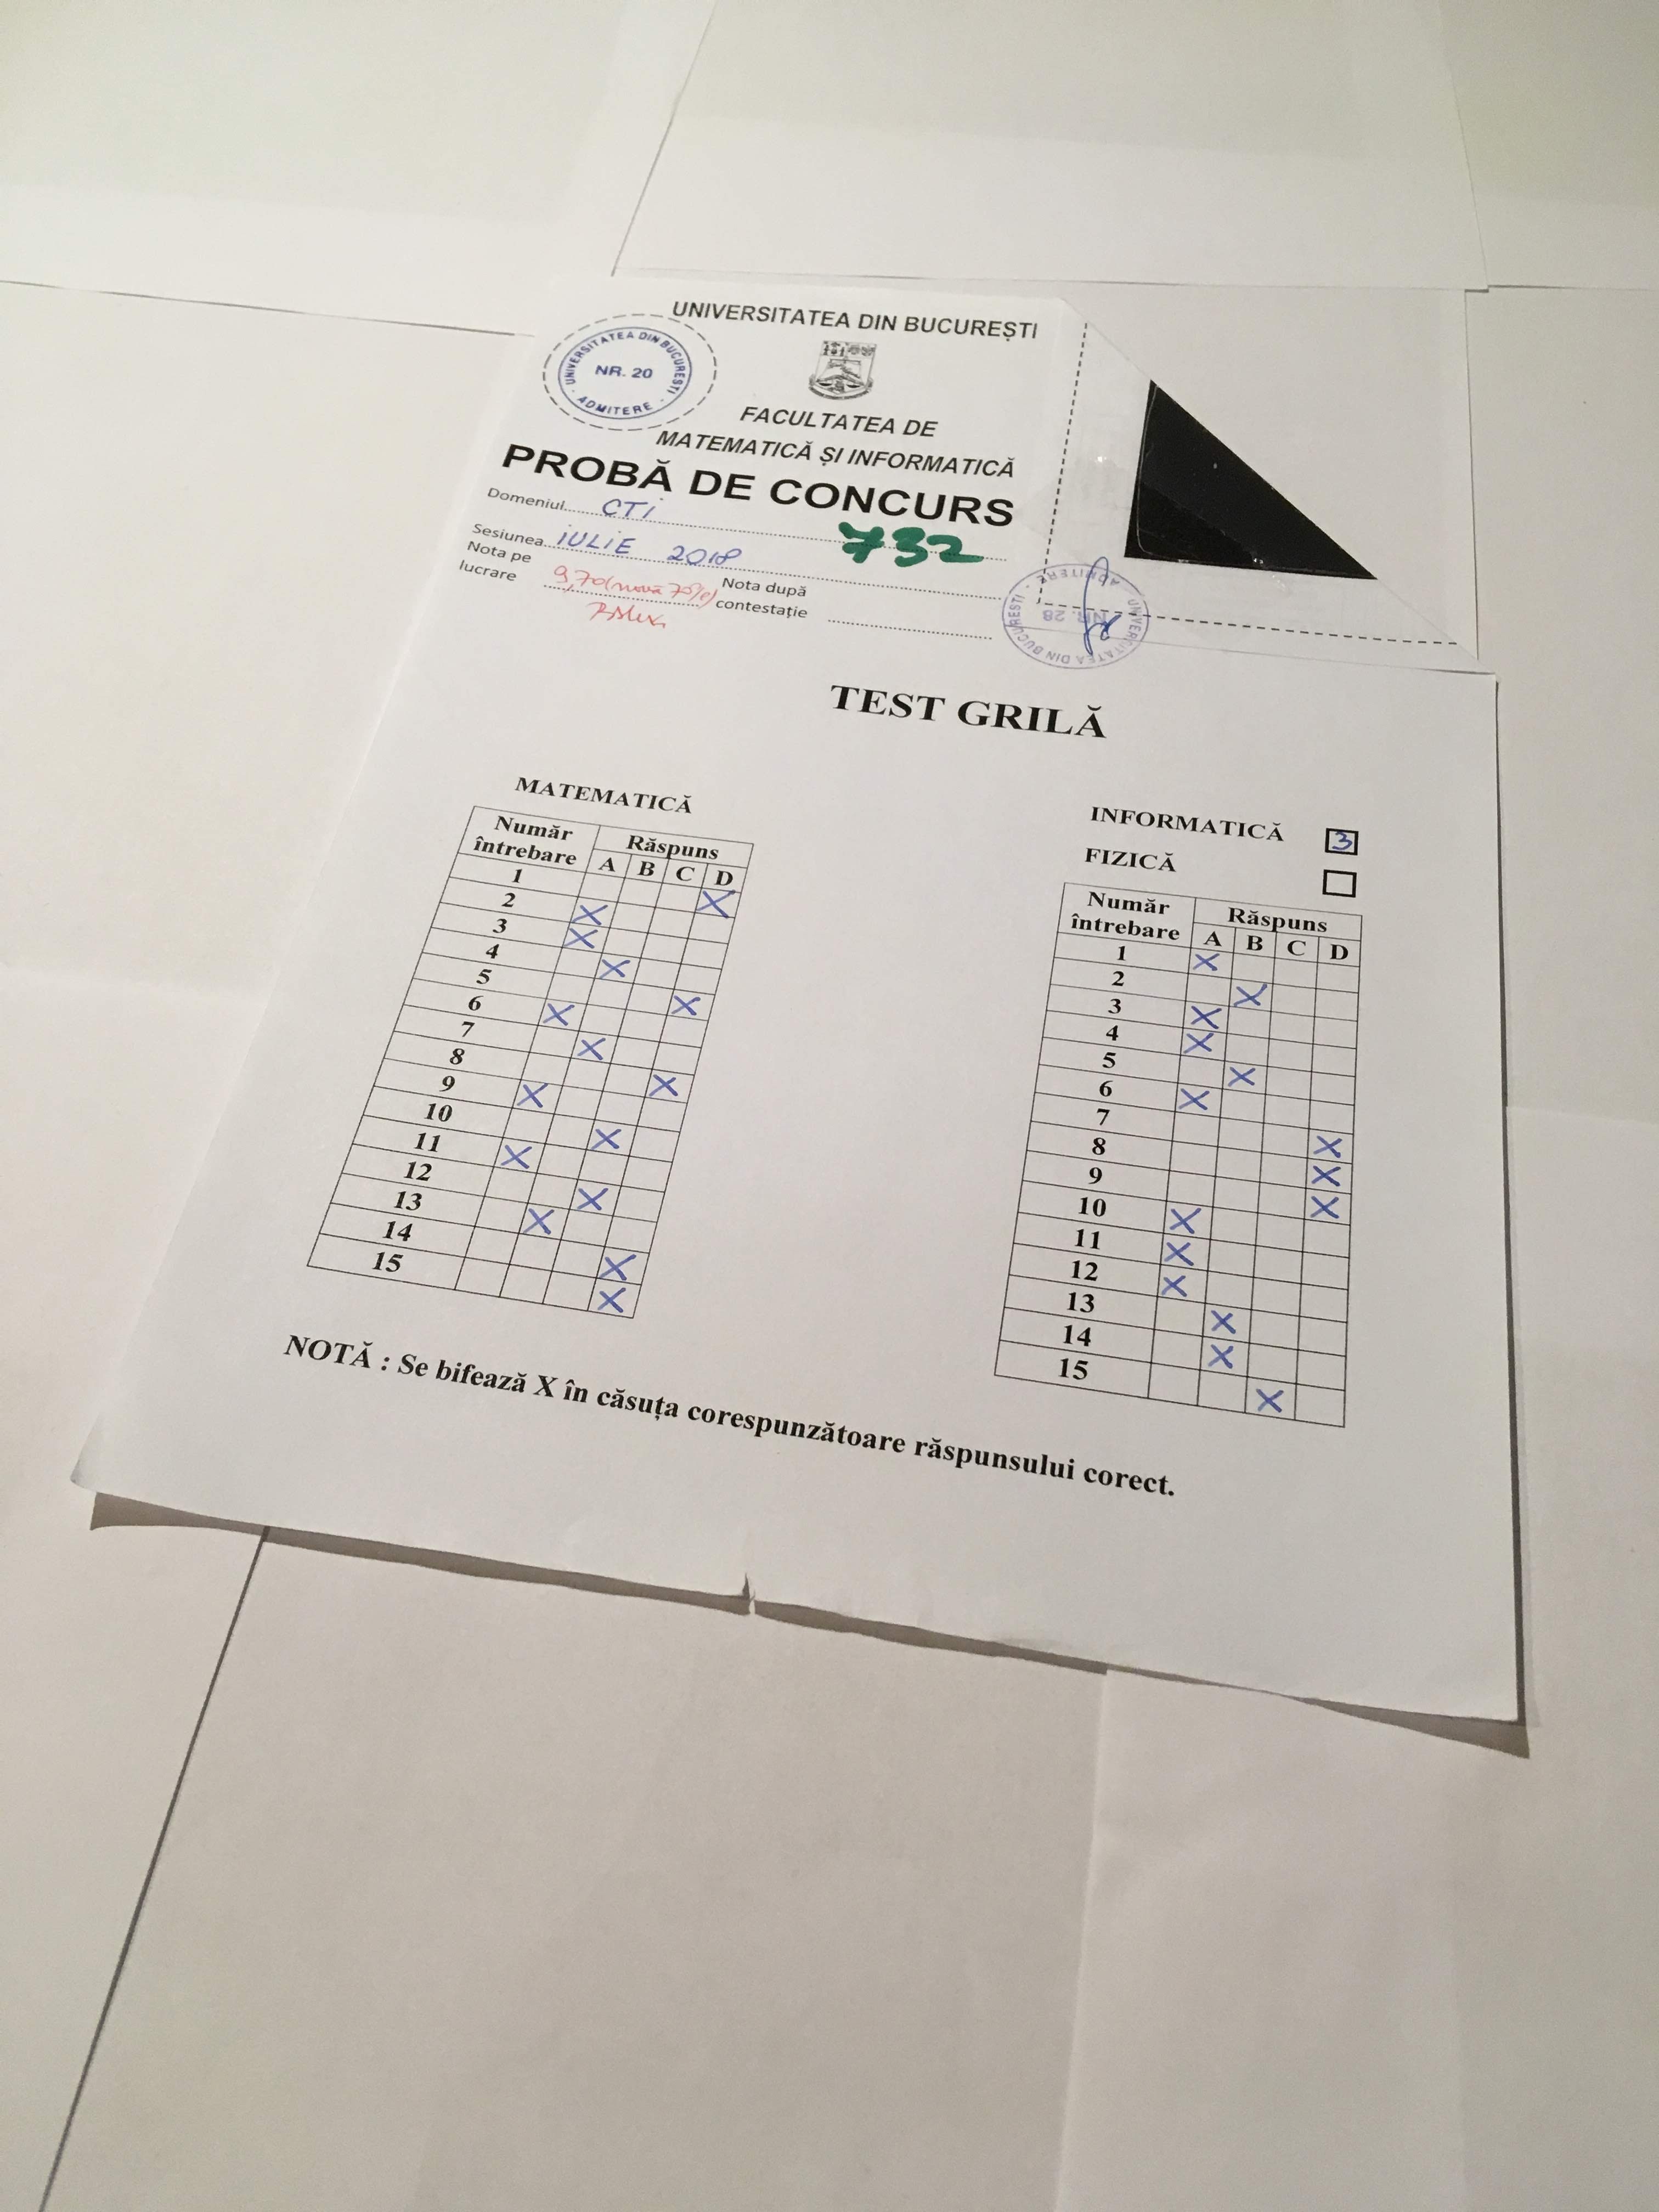 UNIVERSITATEA DIN BUCUREȘTI
UNIVERSITATEA DIN BUCUREȘTI
NR. 20
ADMITERE
FACULTATEA DE
MATEMATICĂ ȘI INFORMATICĂ
PROBĂ DE CONCURS
Domeniul CTi
732
Sesiunea IULIE 2018
Nota pe lucrare 9,70 (nouă 70%)
Nota după contestație
UNIVERSITATEA DIN BUCUREȘTI
NR. 28
ADMITERE
TEST GRILĂ
MATEMATICĂ
Număr întrebare Răspuns
A B C D
1 X
2 X
3 X
4 X
5 X
6 X
7 X
8 X
9 X
10 X
11 X
12 X
13 X
14 X
15 X
INFORMATICĂ 3
FIZICĂ
Număr întrebare Răspuns
A B C D
1 X
2 X
3 X
4 X
5 X
6 X
7 X
8 X
9 X
10 X
11 X
12 X
13 X
14 X
15 X
NOTĂ : Se bifează X în căsuța corespunzătoare răspunsului corect.